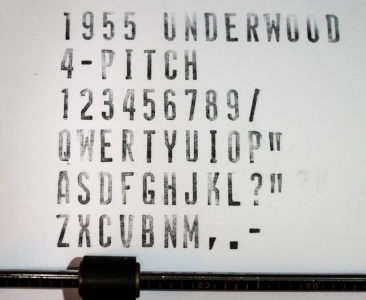 1955 UNDERWOOD
4-PITCH
123456789/
QWERTYUIOP"
ASDFGHJKL?"
ZXCVBNM,.-
20
30